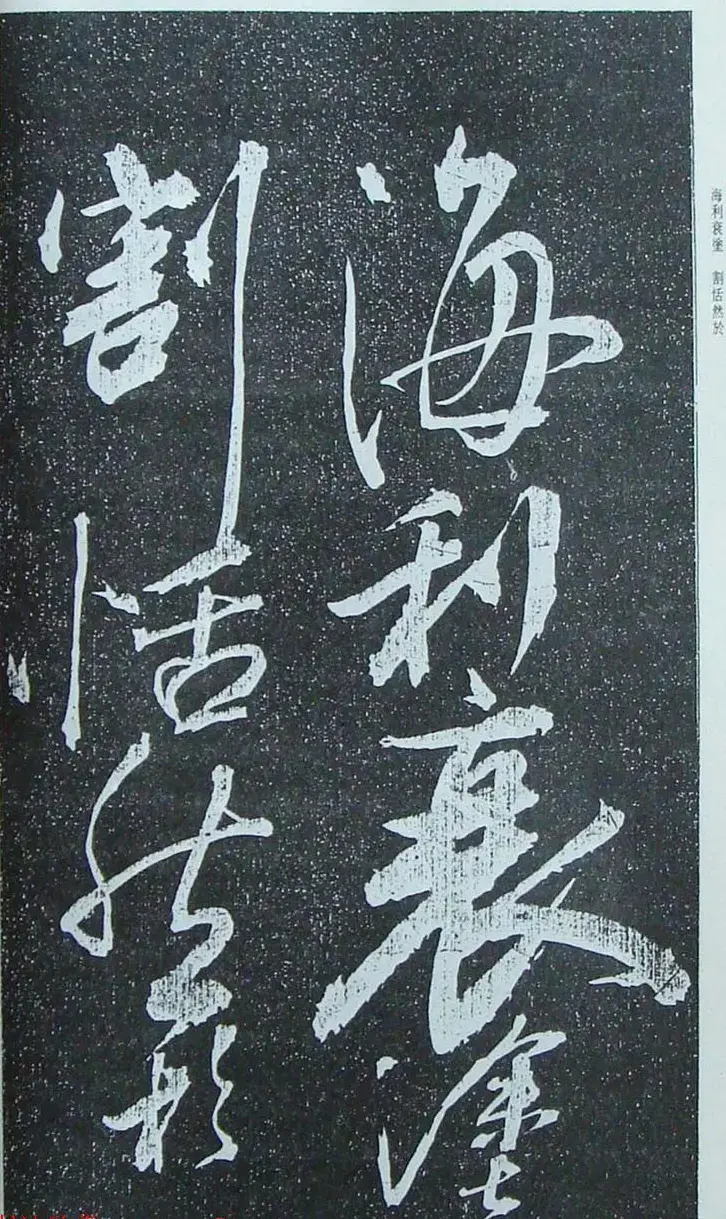 海利衰塗
割恬然於
海利衰塗 割恬然於